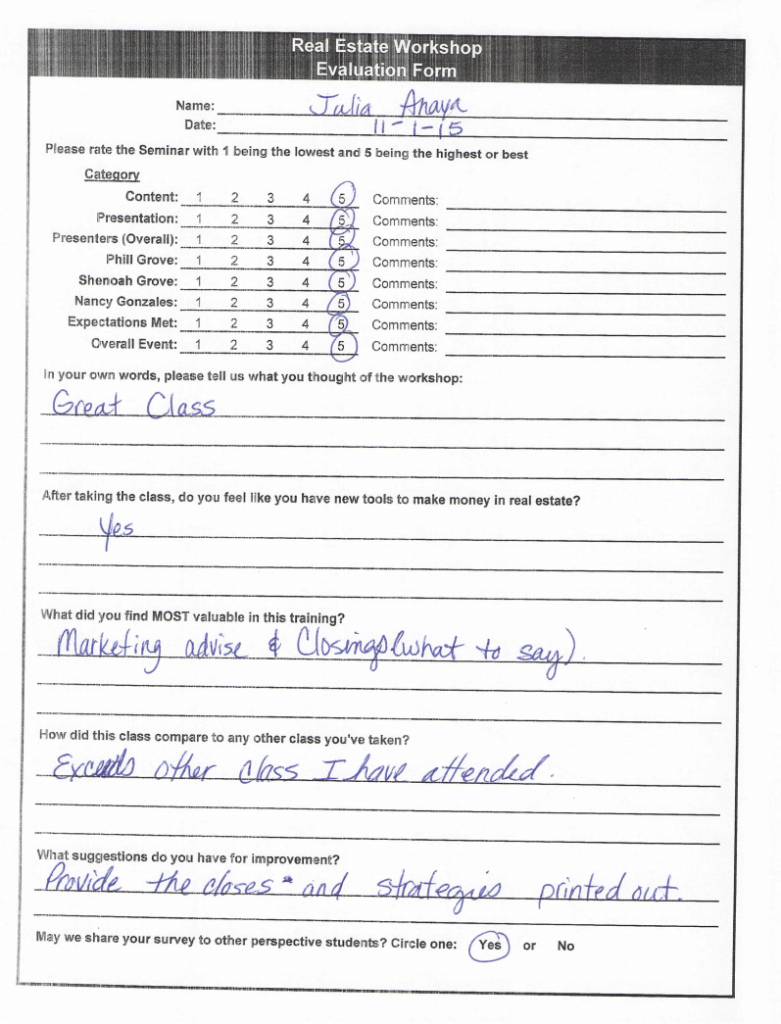 Real Estate Workshop
Evaluation Form
Name: Julia Anaya
Date: 11-1-15
Please rate the Seminar with 1 being the lowest and 5 being the highest or best
Category
Content: 1 2 3 4 5 Comments:
Presentation: 1 2 3 4 5 Comments:
Presenters (Overall): 1 2 3 4 5 Comments:
Phill Grove: 1 2 3 4 5 Comments:
Shenoah Grove: 1 2 3 4 5 Comments:
Nancy Gonzales: 1 2 3 4 5 Comments:
Expectations Met: 1 2 3 4 5 Comments:
Overall Event: 1 2 3 4 5 Comments:
In your own words, please tell us what you thought of the workshop:
Great Class
After taking the class, do you feel like you have new tools to make money in real estate?
Yes
What did you find MOST valuable in this training?
Marketing advise & Closings (what to say).
How did this class compare to any other class you've taken?
Exceeds other class I have attended.
What suggestions do you have for improvement?
Provide the closes * and strategies printed out.
May we share your survey to other perspective students? Circle one: Yes or No